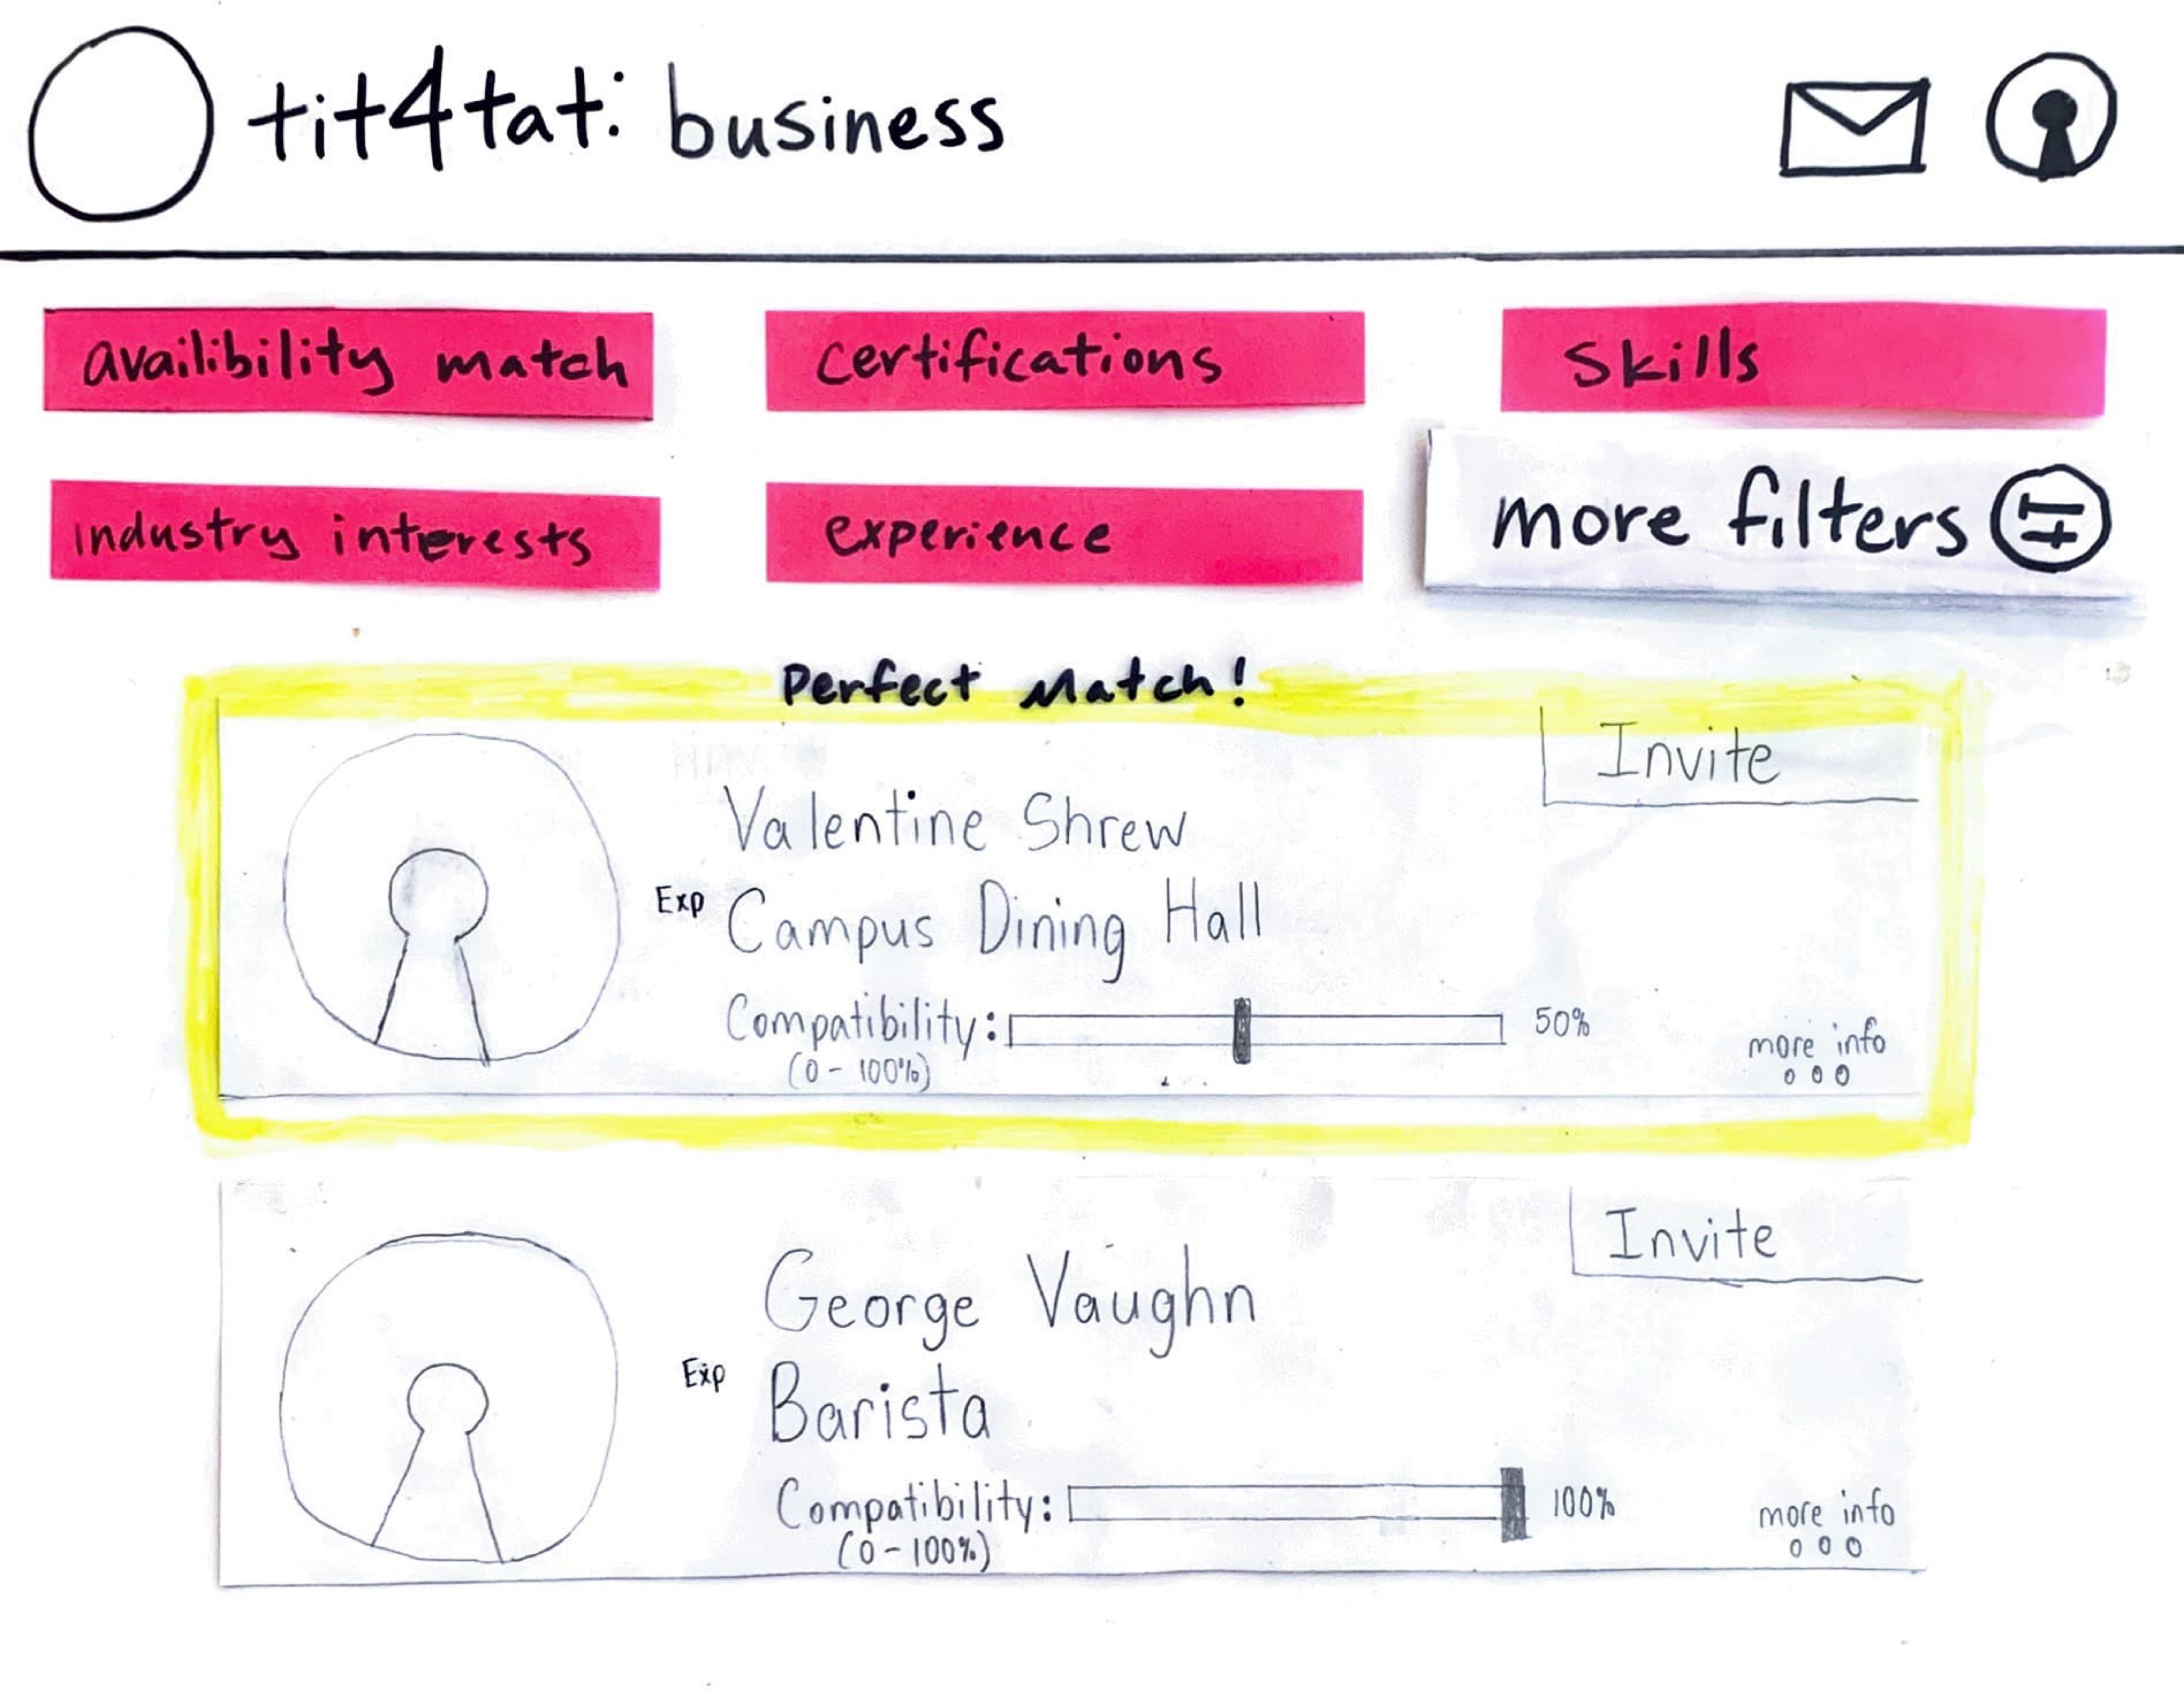 tit4tat: business
availibility match
certifications
skills
industry interests
experience
more filters
Perfect Match!
Invite
Valentine Shrew
Exp Campus Dining Hall
Compatibility: 50%
(0-100%)
more info
Invite
George Vaughn
Exp
Barista
Compatibility: 100%
(0-100%)
more info